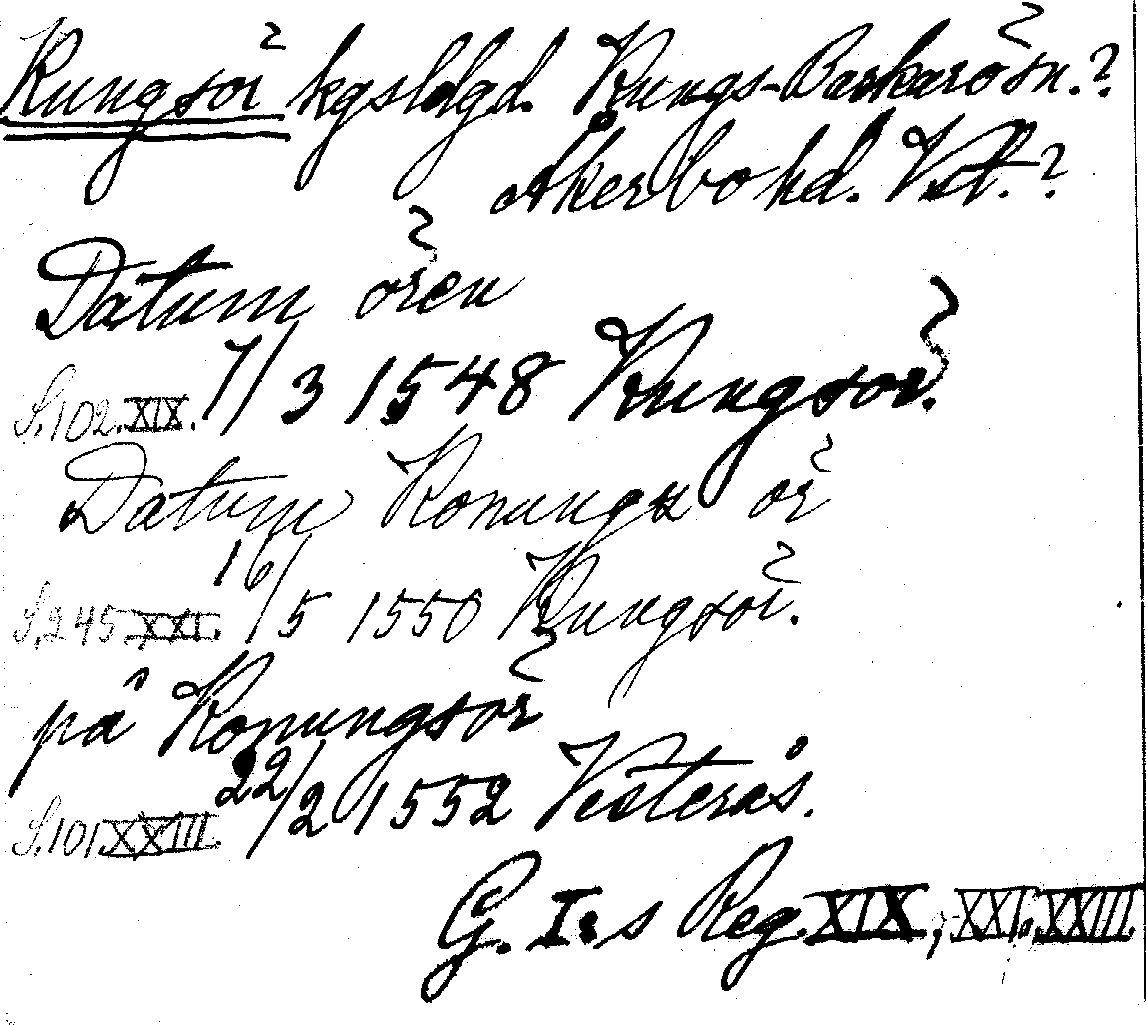 Kungsör kgsldgd. Kungs-Barkarösn.?
Åkerbo hd. Vstl.?
Datum ören
S.102.XIX. 7/3 1548 Kungsör.
Datum Konungx ör
S.245 XXI. 16/5 1550 Kungsör.
på Konungsör
S.101 XXIII. 22/2 1552 Vesterås.
G. I:s Reg. XIX, XXI, XXIII.